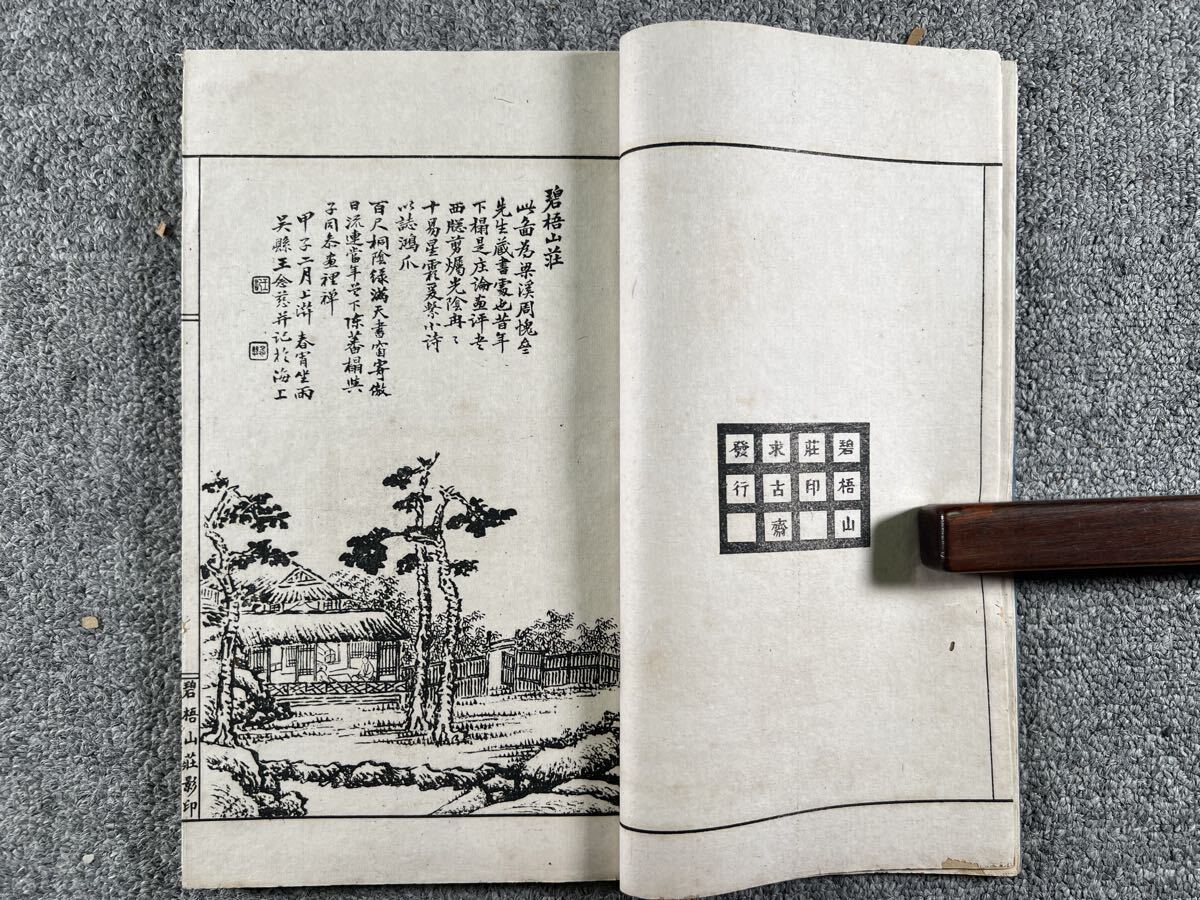 碧梧山
莊印
求古齋
發行
碧梧山莊
此圖為梁溪周愧
先生藏書處也昔年
下榻是庄論畫評書
西牕剪燭光陰冉〻
十易星霜爰繫小詩
以誌鴻爪
百尺桐陰綠滿天書窗寄傲
日流連當年曾下陳蕃榻與
子同參畫裡禪
甲子二月上澣春宵坐雨
吳縣王念慈并記於海上
碧梧山莊影印